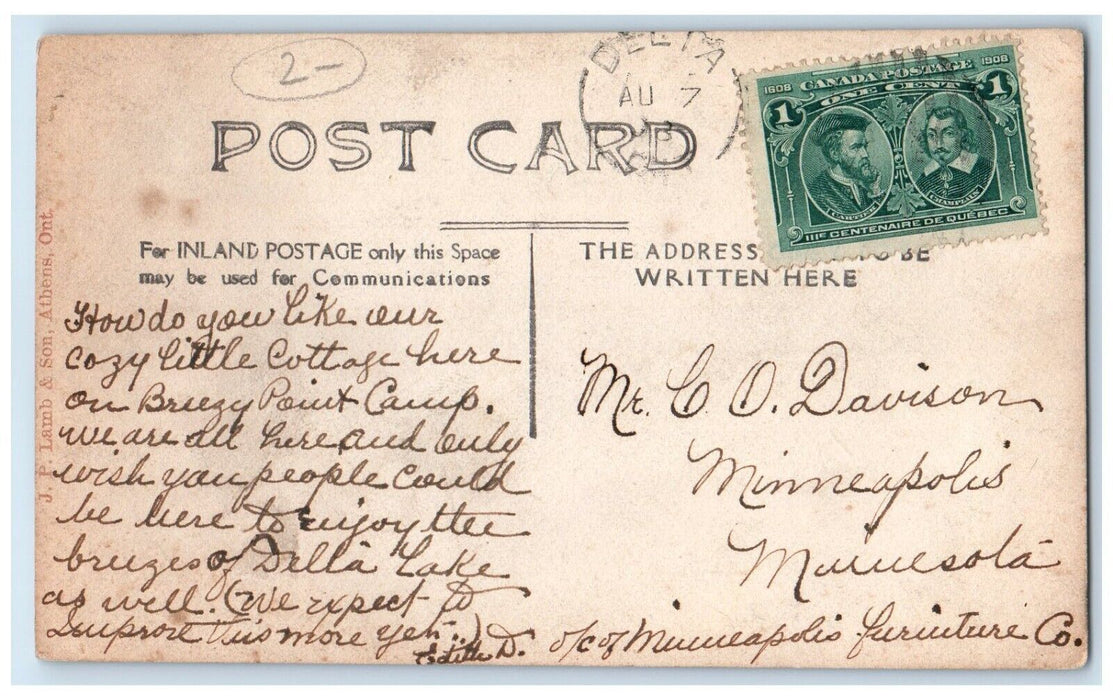 2-
DELTA
AU 7
CANADA POSTAGE
1608 1908
ONE CENT
1 1
CARTIER CHAMPLAIN
IIIE CENTENAIRE DE QUÉBEC
POST CARD
For INLAND POSTAGE only this Space
may be used for Communications
THE ADDRESS TO BE
WRITTEN HERE
J. P. Lamb & Son, Athens, Ont.
How do you like our
cozy little Cottage here
on Breezy Point Camp.
We are all here and only
wish you people could
be here to enjoy the
breezes of Delta Lake
as well. (We expect to
Improve this more yet..)
Edith D.
Mr. C. O. Davison
Minneapolis
Minnesota
o/c of Minneapolis Furniture Co.